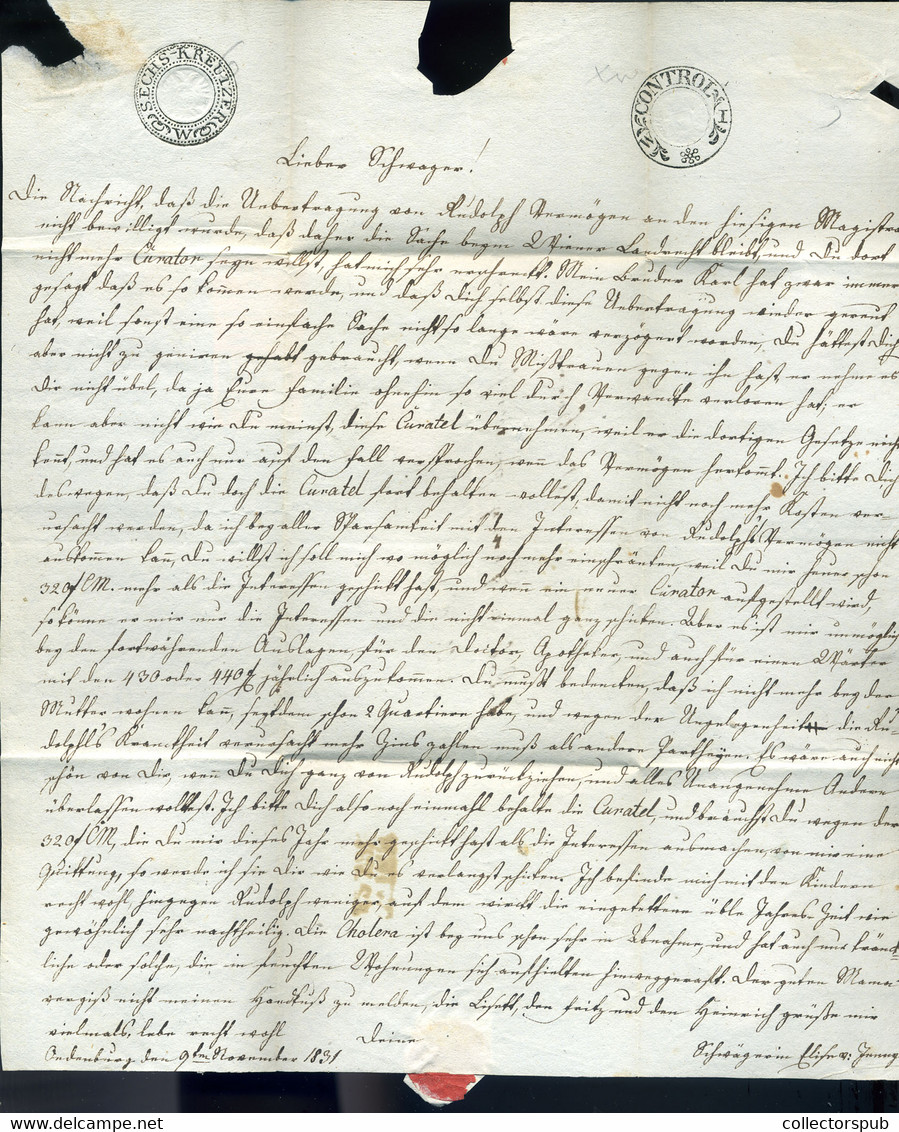 SECHS-KREUTZER W
CONTROL I
Lieber Schwager!
Die Nachricht, daß die Uebertragung von Rudolph Vermögen an den hiesigen Magistra
nicht bewilligt wurde, daß daher die Sache beym Wiener Landrecht bleibt, und Du dort
nicht mehr Curator seyn willst, hat mich sehr erschreckt. Mein Bruder Karl hat zwar immer
gesagt daß es so kommen werde, und daß Dich selbst diese Uebertragung wieder gereut
hat, weil sonst eine so einfache Sache nicht so lange wäre verzögert worden, Du hättest Dich
aber nicht zu geniren gehabt gebraucht, wenn Du Mißtrauen gegen ihn hast, er nehme es
Dir nicht übel, da ja Eure Familie ohnehin so viel durch Verwandte verloren hat; er
kann aber nicht wie Du meinst, diese Curatel übernehmen, weil er die dortigen Gesetze nicht
kennt, und hat es auch nur auf den Fall versprochen, wenn das Vermögen herkommt. Ich bitte Dich
deswegen, daß Du doch die Curatel fort behalten wollest, damit nicht noch mehr Kosten ver-
ursacht werden, da ich bey aller Sparsamkeit mit den Interessen von Rudolphs Vermögen nicht
auskommen kann, Du willst ich soll mich wo möglich noch mehr einschränken, weil Du mir heuer schon
320f CM. mehr als die Interessen geschickt hast, und wenn ein neuer Curator aufgestellt wird,
so könne er mir nur die Interessen und die nicht einmal ganz schicken. Aber es ist mir unmöglich
bey den fortwährenden Auslagen für den Doctor, Apotheker, und auch für einen Wärter
mit den 430 oder 440f jährlich auszukommen. Du mußt bedenken, daß ich nicht mehr bey der
Mutter wohnen kann, seytdem schon 2 Quartiere habe, und wegen der Ungelegenheit die Ru-
dolphs Krankheit verursacht mehr Zins zahlen muß als andere Partheyen. Es wäre auch nicht
schön von Dir, wenn Du Dich ganz von Rudolph zurückziehen, und alles Unangenehme Andern
überlassen wolltest. Ich bitte Dich also noch einmahl behalte die Curatel, und brauchst Du wegen der
320f CM, die Du mir dieses Jahr mehr geschickt hast als die Interessen ausmachen, von mir eine
Quittung, so werde ich sie Dir wie Du es verlangst schicken. Ich befinde mich mit den Kindern
recht wohl, hingegen Rudolph weniger, auf dem wirckt die eingetrettene üble Jahres-Zeit wie
gewöhnlich sehr nachtheilig. Die Cholera ist bey uns schon sehr in Abnahme, und hat auch nur kränk-
liche oder solche, die in feuchten Wohnungen sich aufhielten hinweggerafft. Der guten Mama
vergiß nicht meinen Handkuß zu melden, die Lisett, den Fritz und den Heinrich grüße mir
vielmals, lebe recht wohl
Deine
Oedenburg den 9ten November 1831
Schwägerin Elise v: Jenny
collectorspub